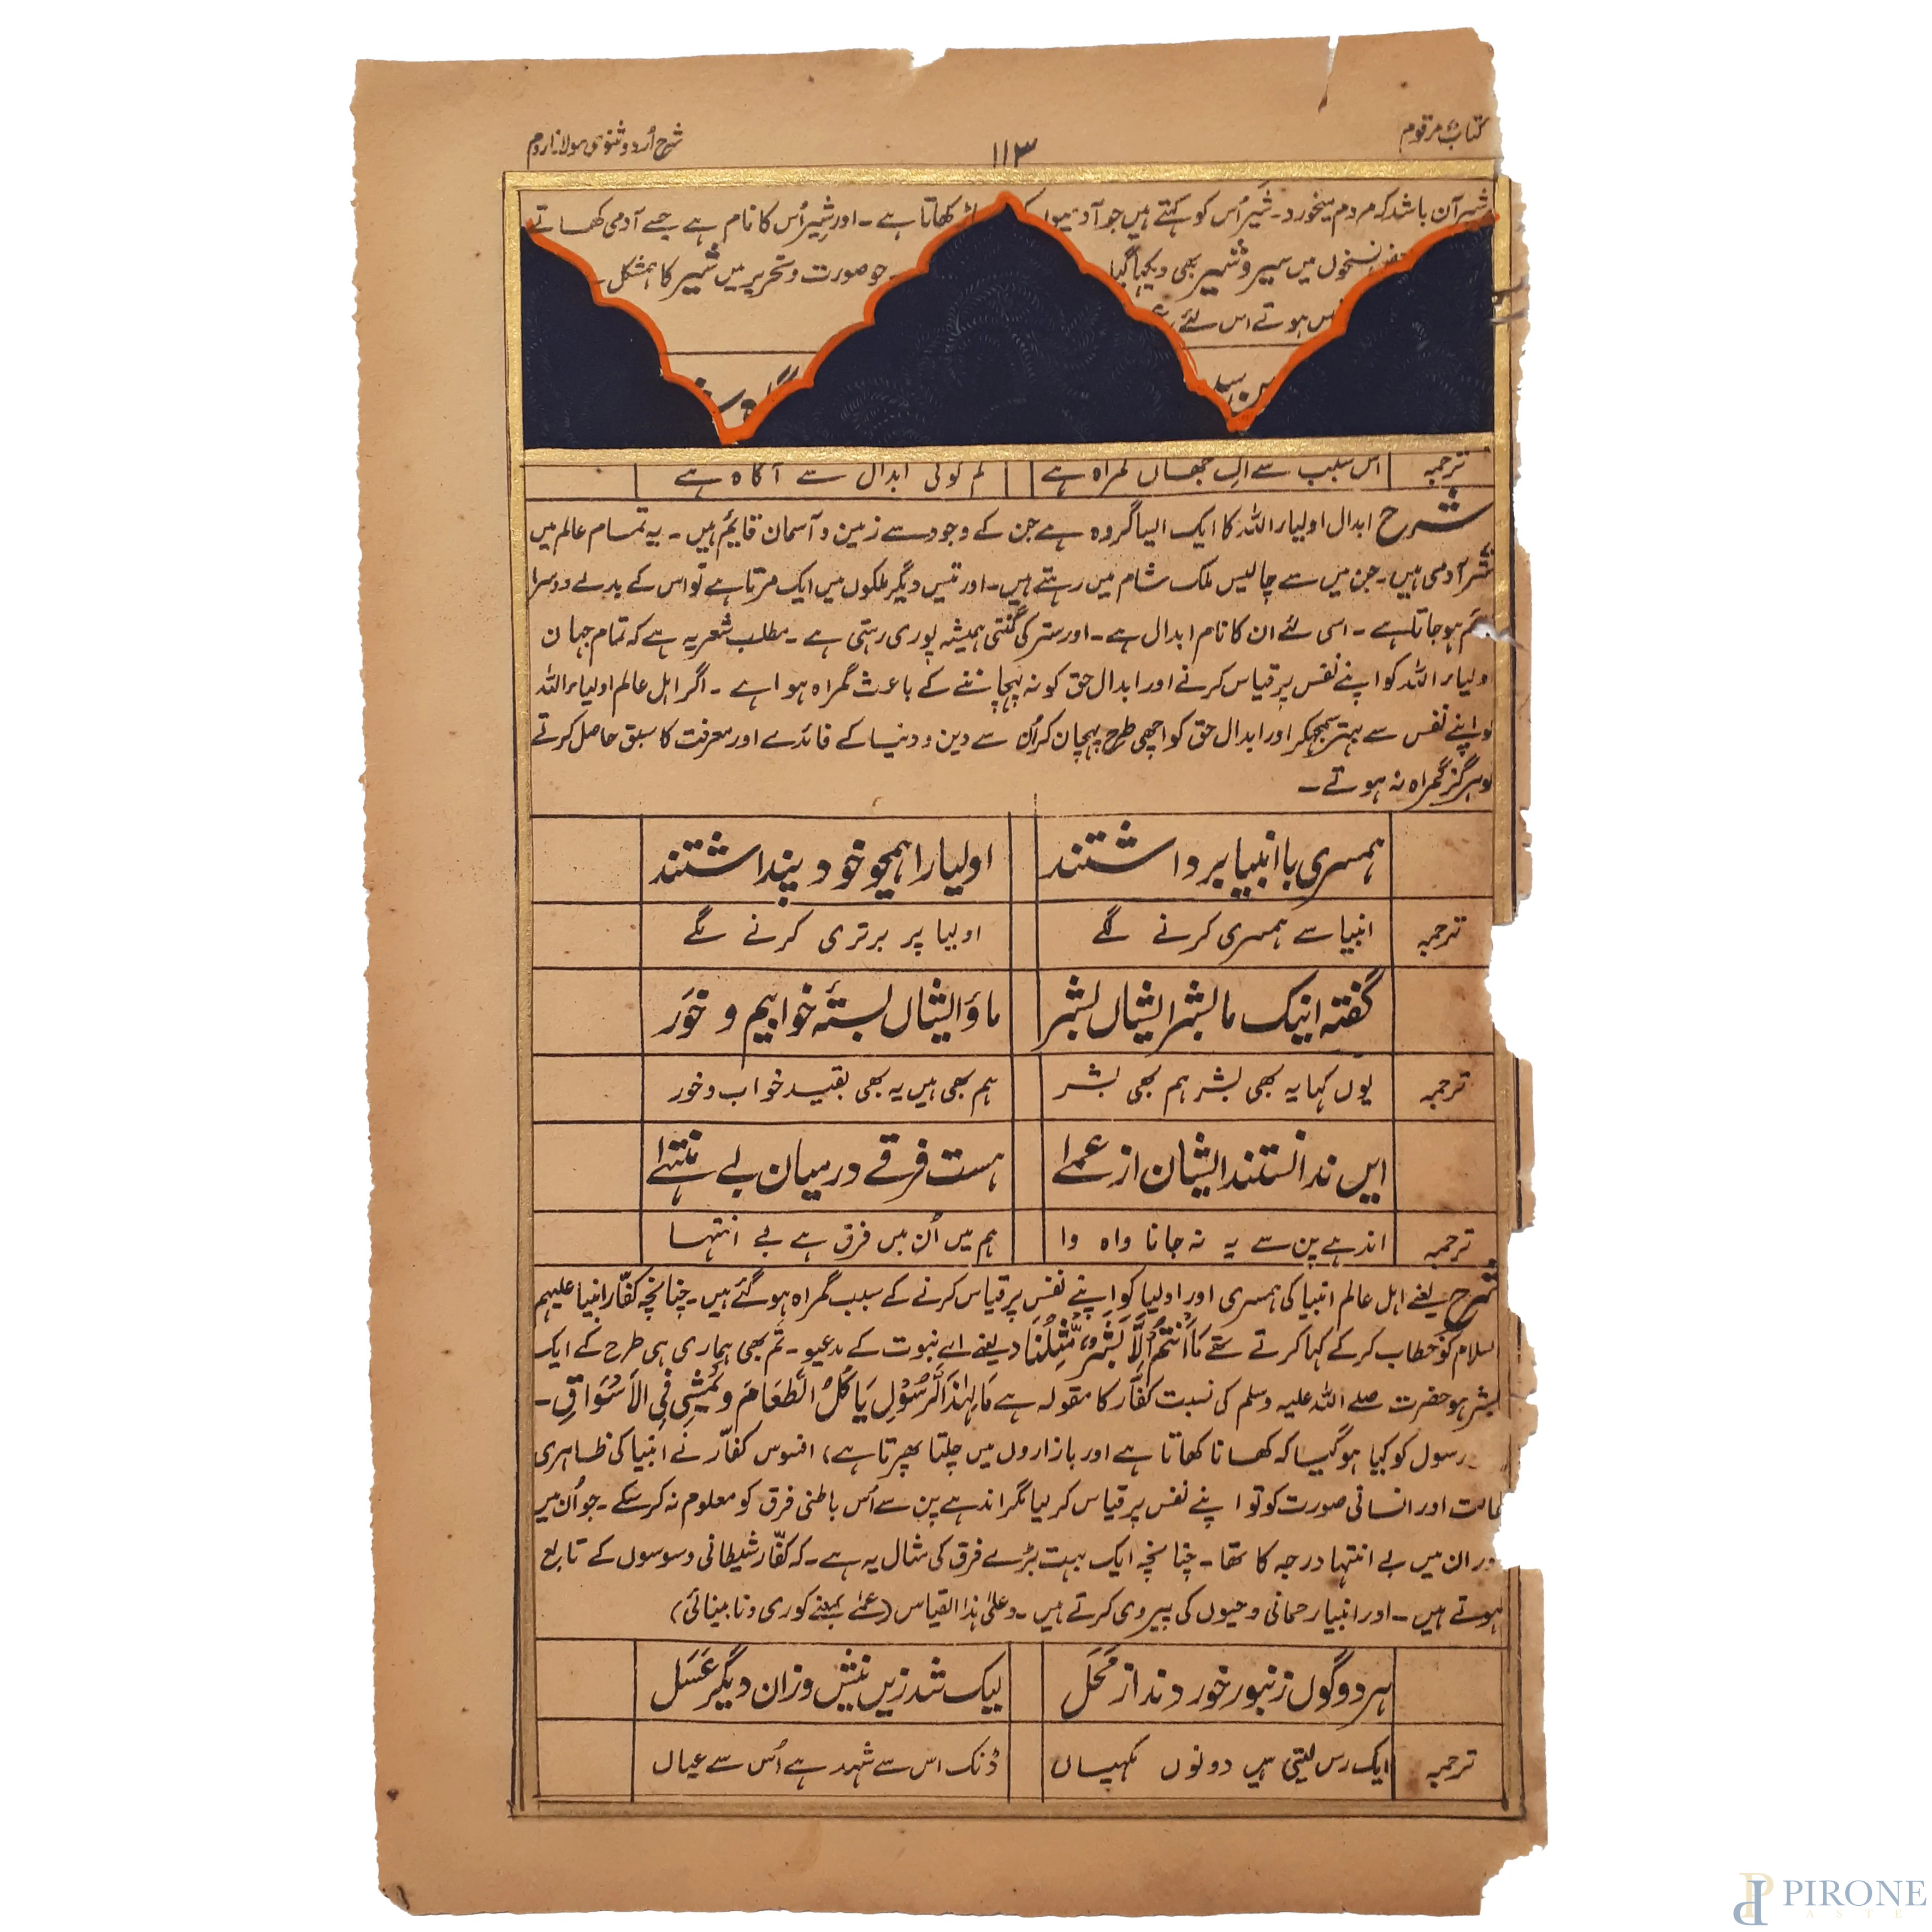 کتاب مرقوم
۱۱۳
شرح اُردو مثنوی مولانا روم
شیر آن باشد کہ مردم میخورد۔ شیر اُس کو کہتے ہیں جو آدمیوں کھاتا ہے۔ اور شِیر اُس کا نام ہے جسے آدمی کھاتے
نسخوں میں سیر و شیر بھی دیکھا گیا جو صورت و تحریر میں شیر کا ہمشکل
ہوتے اس لئے
ترجمہ اس سبب سے اک جہاں گمراہ ہے کم کوئی ابدال سے آگاہ ہے
شرح ابدال اولیاء اللہ کا ایک ایسا گروہ ہے جن کے وجود سے زمین و آسمان قایم ہیں۔ یہ تمام عالم میں
ستر آدمی ہیں۔ جن میں سے چالیس ملک شام میں رہتے ہیں۔ اور تیس دیگر ملکوں میں ایک مرتا ہے تو اس کے بدلے دوسرا
ہوجاتا ہے۔ اسی لئے ان کا نام ابدال ہے۔ اور ستر کی گنتی ہمیشہ پوری رہتی ہے۔ مطلب شعر یہ ہے کہ تمام جہان
اولیاء اللہ کو اپنے نفس پر قیاس کرنے اور ابدال حق کو نہ پہچاننے کے باعث گمراہ ہوا ہے۔ اگر اہل عالم اولیاء اللہ
کو اپنے نفس سے بہتر سمجھکر اور ابدال حق کو اچھی طرح پہچان کر اُن سے دین و دنیا کے فائدے اور معرفت کا سبق حاصل کرتے
تو ہرگز گمراہ نہ ہوتے۔
ہمسری با انبیا برداشتند اولیا را ہمچو خود پنداشتند
ترجمہ انبیا سے ہمسری کرنے لگے اولیا پر برتری کرنے لگے
گفتہ اینک ما بشر ایشاں بشر ما و ایشاں بستۂ خوابیم و خَور
ترجمہ یوں کہا یہ بھی بشر ہم بھی بشر ہم بھی ہیں یہ بھی بقید خواب و خور
ایں ندانستند ایشان از عمےٰ ہست فرقے درمیان بے منتہےٰ
ترجمہ اندھے پن سے یہ نہ جانا واہ وا ہم میں اُن میں فرق ہے بے انتہا
شرح یعنے اہل عالم انبیا کی ہمسری اور اولیا کو اپنے نفس پر قیاس کرنے کے سبب گمراہ ہوگئے ہیں۔ چنانچہ کفّار انبیا علیہم
السلام کو خطاب کرکے کہا کرتے تھے مَا اَنْتُمْ اِلَّا بَشَرٌ مِّثْلُنَا دیعنے اے نبوت کے مدعیو۔ تم بھی ہماری ہی طرح کے ایک
بشر ہو حضرت صلے اللہ علیہ وسلم کی نسبت کفّار کا مقولہ ہے مَا لِہٰذَا الرَّسُوْلِ یَاکُلُ الطَّعَامَ وَیَمْشِیْ فِی الْاَسْوَاقِ۔
رسول کو کیا ہوگیا کہ کھانا کھاتا ہے اور بازاروں میں چلتا پھرتا ہے) افسوس کفّار نے انبیا کی ظاہری
حالت اور انسانی صورت کو تو اپنے نفس پر قیاس کرلیا مگر اندھے پن سے اُس باطنی فرق کو معلوم نہ کرسکے۔ جو اُن میں
اور ان میں بے انتہا درجہ کا تھا۔ چنانچہ ایک بہت بڑے فرق کی مثال یہ ہے۔ کہ کفّار شیطانی وسوسوں کے تابع
ہوتے ہیں۔ اور انبیا رحمانی وحیوں کی پیروی کرتے ہیں۔ وعلیٰ ہذا القیاس (عمےٰ بمعنے کوری و نابینائی)
ہر دو گوں زنبور خوردند از مَحَل لیک شد زیں نیش و زان دیگر عَسَل
ترجمہ ایک رس لیتی ہیں دونوں مکھیاں ڈنک اس سے شہد ہے اُس سے عیاں
PIRONE
ASTE